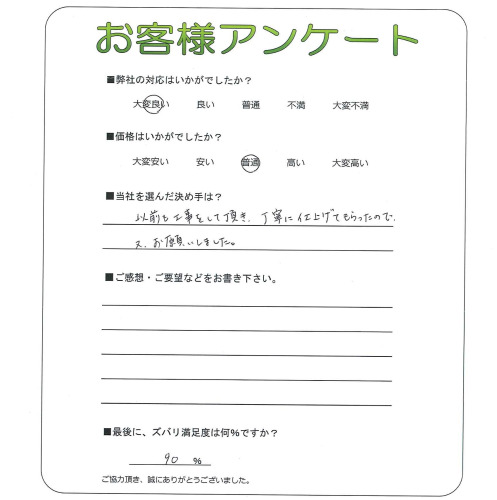 お客様アンケート
■弊社の対応はいかがでしたか?
大変良い 良い 普通 不満 大変不満
■価格はいかがでしたか?
大変安い 安い 普通 高い 大変高い
■当社を選んだ決め手は?
以前も工事をして頂き、丁寧に仕上げてもらったので、
又、お願いしました。
■ご感想・ご要望などをお書き下さい。
■最後に、ズバリ満足度は何%ですか?
90 %
ご協力頂き、誠にありがとうございました。